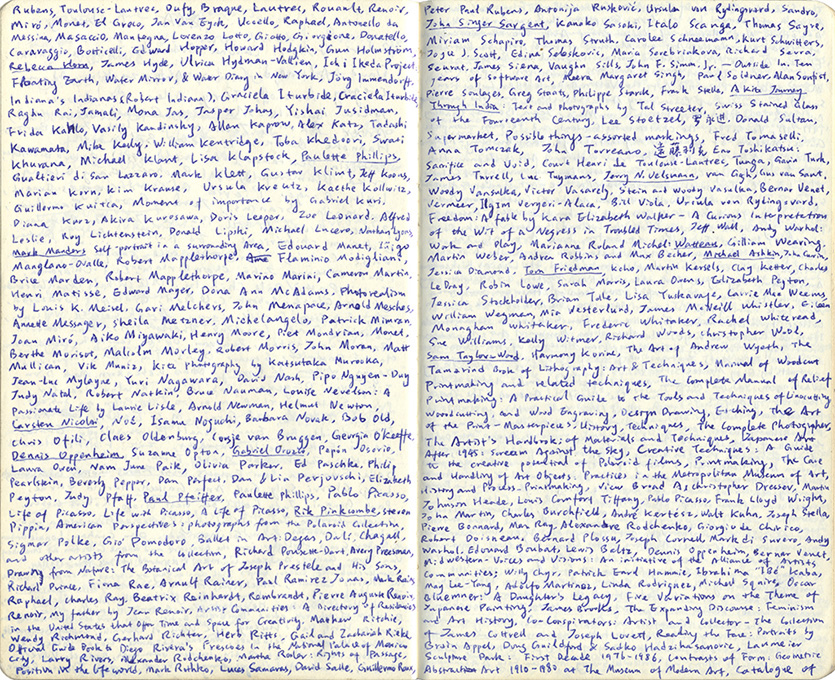 Rubens, Toulouse-Lautrec, Dufy, Braque, Lautrec, Rouault, Renoir,
Miró, Monet, El Greco, Jan Van Eyck, Uccello, Raphael, Antonello da
Messina, Masaccio, Mantegna, Lorenzo Lotto, Giotto, Giorgione, Donatello,
Caravaggio, Botticelli, Edward Hopper, Howard Hodgkin, Gun Holmström,
Rebecca Horn, James Hyde, Ulrica Hydman-Vallien, Ichi Ikeda Project
Floating Earth, Water Mirror, & Water Diary in New York, Jörg Immendorff,
Indiana's Indianas (Robert Indiana), Graciela Iturbide, Graciela Iturbide,
Raghu Rai, Jamali, Mona Jas, Jasper Johns, Yishai Jusidman,
Frida Kahlo, Vasily Kandinsky, Allan Kaprow, Alex Katz, Tadashi
Kawamata, Mike Kelly, William Kentridge, Toba Khedoori, Swasi
Khurana, Michael Klant, Lisa Klapstock, Paulette Phillips,
Gualtieri di San Lazzaro, Mark Klett, Gustav Klimt, Jeff Koons,
Marian Korn, Kim Krause, Ursula Kreutz, Kaethe Kollwitz,
Guillermo Kuitca, Moment of importance by Gabriel Kuri.
Diana Kurz, Akira Kurosawa, Doris Leeper, Zoe Leonard. Alfred
Leslie, Roy Lichtenstein, Donald Lipski, Michael Lucero, Nathan Lyons,
Mark Manders Self-portrait in a surrounding Area, Edouard Manet, Iñigo
Manglano-Ovalle, Robert Mapplethorpe, Flaminio Modigliani,
Brice Marden, Robert Mapplethorpe, Marino Marini, Cameron Martin,
Henri Matisse, Edward Mayer, Dona Ann McAdams, Photorealism
by Louis K. Meisel, Gari Melchers, John Menapace, Arnold Mesches,
Annette Messager, Sheila Metzner, Michelangelo, Patrick Mimran,
Joan Miró, Aiko Miyawaki, Henry Moore, Piet Mondrian, Monet,
Berthe Morisot, Malcolm Morley, Robert Morris, John Moran, Matt
Mullican, Vik Muniz, Kites photography by Katsutaka Murooka,
Jean-Luc Mylayne, Yuri Nagawara, David Nash, Pipo Nguyen-Duy
Judy Natal, Robert Natkin, Bruce Nauman, Louise Nevelson: A
Passionate Life by Laurie Lisle, Arnold Newman, Helmut Newton,
Carsten Nicolai, Noé, Isamu Noguchi, Barbara Novak, Bob Old,
Chris Ofili, Claes Oldenburg, Coosje van Bruggen, Georgia O'Keeffe,
Dennis Oppenheim, Suzanne Opton, Gabriel Orozco, Pepón Osorio,
Laura Owen, Nam June Paik, Olivia Parker, Ed Paschke, Philip
Pearlstein, Beverly Pepper, Dan Perfect, Dan & Lia Perjovschi, Elizabeth
Peyton, Judy Pfaff, Paul Pfeiffer, Paulette Phillips, Pablo Picasso,
Life of Picasso, Life with Picasso, A Life of Picasso, Rik Pinkcombe, Steven
Pippin, American Perspectives: photographs from the Polaroid Collection,
Sigmar Polke, Gió Pomodoro, Ballet in Art: Degas, Dali, Chagall,
and other artists from the Collection, Richard Pousette-Dart, Avery Preesman,
Drawing from Nature: The Botanical Art of Joseph Prestele and His Sons,
Richard Prince, Fiona Rae, Arnulf Rainer, Paul Ramirez Jonas,
Raphael, Charles Ray, Beatrix Reinhardt, Rembrandt, Pierre Auguste Renoir,
Renoir, My father by Jean Renoir, Artist Communities: A Directory of Residencies
in the United States that Offer Time and Space for Creativity, Matthew Ritchie,
Wendy Richmond, Gerhard Richter, Herb Ritts, Gail and Zachariah Rieke
Official Guide Book to Diego Rivera's Frescoes in the National Palace of Mexico
City, Larry Rivers, Alexander Rodchenko, Martha Rosler: Rights of Passage,
Positive in the lifeworld, Mark Rothko, Lucas Samaras, David Salle, Guillermo Roux,
Peter Paul Rubens, Antonija Rusković, Ursula von Rydingsvard, Sandro,
John Singer Sargent, Kanoko Sasaki, Italo Scanga, Thomas Sayre,
Miriam Schapiro, Thomas Struth, Carolee Schneemann, Kurt Schwitters,
Joyce J. Scott, Edina Seleskovic, Maria Serebriakova, Richard Serra
Seurat, James Siena, Vaughn Sills, John F. Simon, Jr. - Outside In: Ten
years of Software Art, Margaret Singh, Paul Soldner, Alan Sonfist,
Pierre Soulages, Greg Staats, Philippe Starck, Frank Stella, A Kite Journey
Through India: Text and Photographs by Tal Streeter, Swiss Stained Glass
of the Fourteenth Century, Lee Stoetzel, Donald Sultan,
Supermarket, Possible things - assorted markings, Fred Tomaselli,
Anna Tomczak, John Torreano, Eno Toshikatsu:
Sacrifice and Void, Court Henri de Toulouse-Lautrec, Tunga, Gavin Turk,
James Turrell, Luc Tuymans, Jerry N. Uelsmann, van Gogh, Gus van Sant,
Woody Vansulka, Victor Vasarely, Stein and Woody Vasulka, Bernar Venet,
Vermeer, Ilgim Veryeri-Alaca, Bill Viola, Ursula von Rydingsvard,
Freedom: A fable by Kara Elizabeth Walker - A Curious Interpretation
of the Wit of a Negress in Troubled Times, Jeff Wall, Andy Warhol:
Work and Play, Marianne Roland Michel: Watteau, Gillian Wearing,
Martin Weber, Andrea Robbins and Max Becher, Michael Ashkin, John Currin,
Jessica Diamond, Tom Friedman, Kcho, Martin Kersels, Clay Ketter, Charles
LeDray, Robin Lowe, Sarah Morris, Laura Owens, Elizabeth Peyton,
Jessica Stockholder, Brian Tolle, Lisa Yuskavage, Carrie Mae Weems,
William Wegman, Mia Westerlund, James McNeill Whistler, Eileen
Monaghan Whitaker, Frederic Whitaker, Rachel Whiteread,
Sue Williams, Kelly Witmer, Richard Woods, Christopher Wool,
Sam Taylor-Wood, Harmony Korine, The Art of Andrew Wyeth, The
Tamarind Book of Lithography: Art & Techniques, Manual of Woodcut
Printmaking and related techniques, The Complete Manual of Relief
Printmaking: A Practical Guide to the Tools and Techniques of Linocutting
Woodcutting, and Wood Engraving, Design Drawing, Etching, The Art
of the Print - Masterpieces, History, Techniques, The Complete Photographer,
The Artist's Handbook of Materials and Techniques, Japanese Art
After 1945: Scream Against the Sky, Creative Techniques: A Guide
to the creative potential of Polaroid films, Printmaking, The Care
and Handling of Art Objects: Practices in the Metropolitan Museum of Art,
History and Process: Printmaking, Bernd Aschristopher Dressor, Martin
Johnson Heade, Louis Comfort Tiffany, Pablo Picasso, Frank Lloyd Wright,
John Martin, Charles Burchfield, André Kertész, Walt Kuhn, Joseph Stella,
Pierre Bonnard, Man Ray, Alexandre Rodchenko, Giorgio de Chirico,
Robert Doisneau, Bernard Plossu, Joseph Cornell, Mark di Suvero, Andy
Warhol, Edouard Boubat, Lewis Beltz, Dennis Oppenheim, Bernar Venet,
Midwestern Voices and Visions: An initiative of the Alliance of Artists
Communities; Willy Chyr, Patrick Earl Hammie, Ibrahima "Ibé" Kaba,
May Lee-Yang, Adolfo Martinez, Linda Rodriguez, Michel Squire, Oscar
Bluemner: A Daughter's Legacy, Five Variations on the Theme of
Japanese Painting, James Brooks, The Expanding Discourse: Feminism
and Art History, Co-Conspirators: Artist and Collector - The Collection
of James Cottrell and Joseph Lovett, Reading the Face: Portraits by
Brain Appel, Doug Guildford & Sadko Hadzihasanovic, Laumeier
Sculpture Park: First Decade 1976-1986, Contrasts of Form: Geometric
Abstract Art 1910-1980 at The Museum of Modern Art, Catalogue of